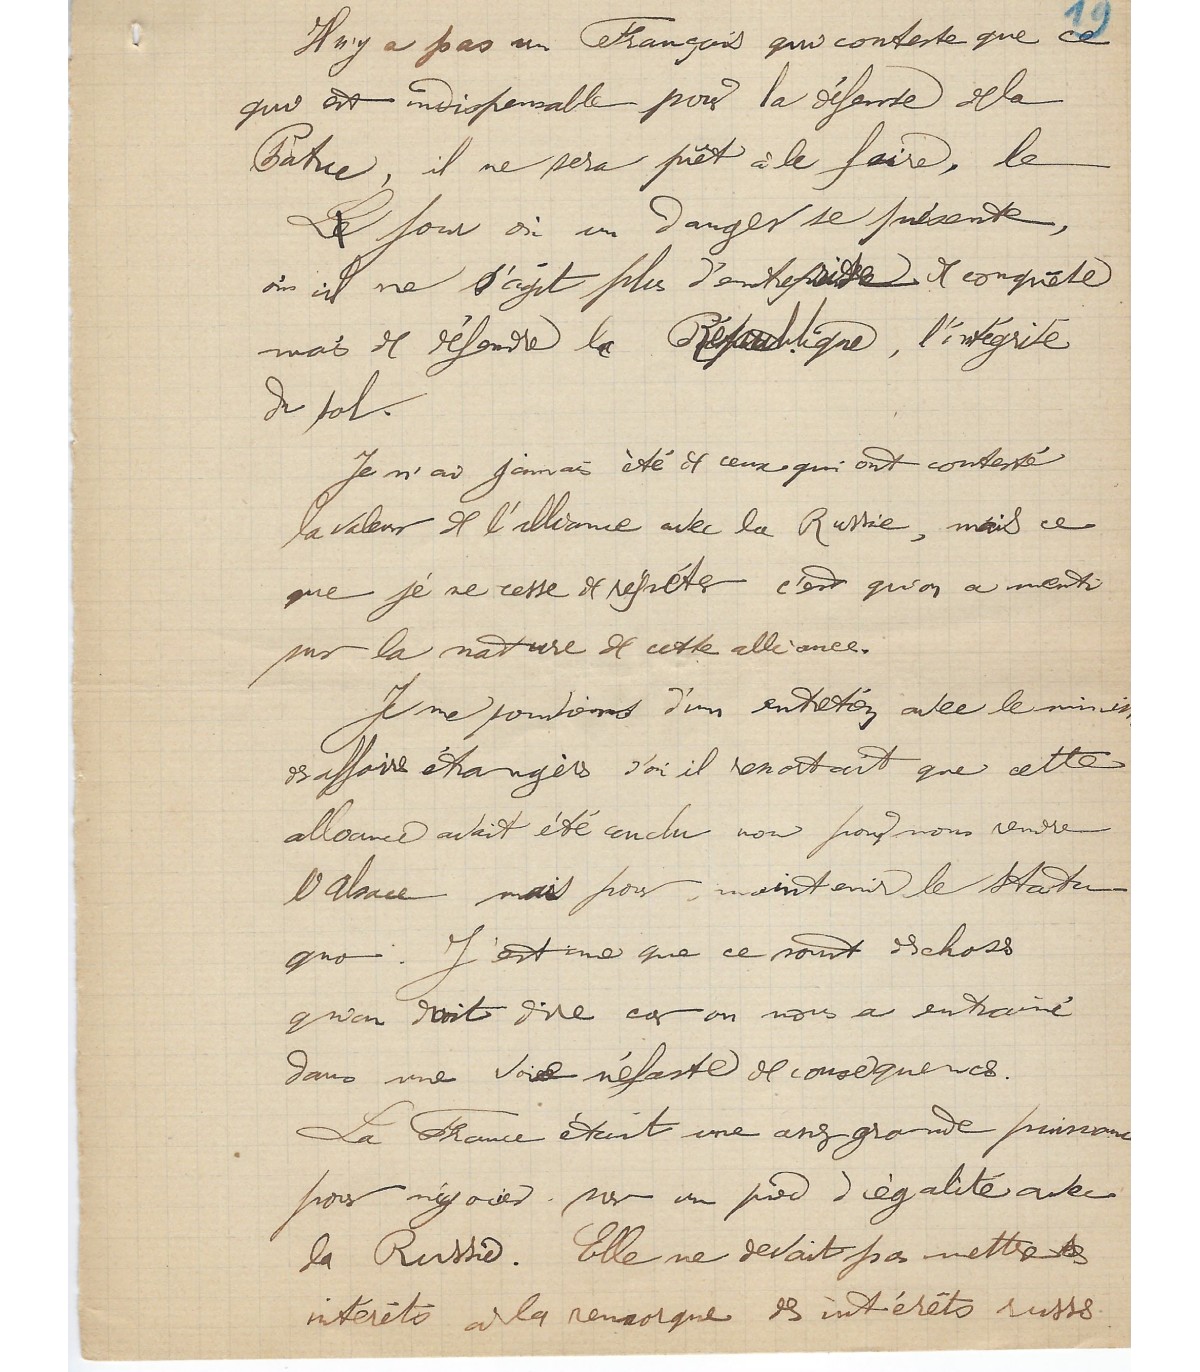 19
Il n'y a pas un Français qui conteste que ce
qui est indispensable pour la défense de la
Patrie, il ne sera prêt à le faire, le
Le jour où un danger se présente,
où il ne s'agit plus d'entreprise de conquête
mais de défendre la République, l'intégrité
du sol.
Je n'ai jamais été de ceux qui ont contesté
la valeur de l'alliance avec la Russie, mais ce
que je ne cesse de répéter c'est qu'on a menti
sur la nature de cette alliance.
Je me souviens d'un entretien avec le minis
des affaires étrangères d'où il ressortait que cette
alliance avait été conclu non pour nous rendre
l'Alsace mais pour maintenir le statu
quo. J'estime que ce sont des choses
qu'on doit dire car on nous a entrainé
dans une voie néfaste de conséquences.
La France était une assez grande puissance
pour négocier sur un pied d'égalité avec
la Russie. Elle ne devait pas mettre les
intérêts à la remorque des intérêts russes